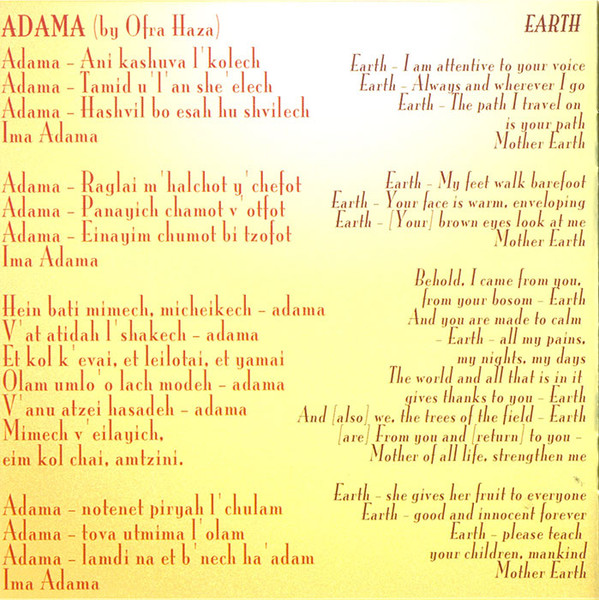 ADAMA (by Ofra Haza)
Adama – Ani kashuva l'kolech
Adama – Tamid u'l'an she'elech
Adama – Hashvil bo esah hu shvilech
Ima Adama
Adama – Raglai m'halchot y'chefot
Adama – Panayich chamot v'otfot
Adama – Einayim chumot bi tzofot
Ima Adama
Hein bati mimech, micheikech – adama
V'at atidah l'shakech – adama
Et kol k'evai, et leilotai, et yamai
Olam umlo'o lach modeh – adama
V'anu atzei hasadeh – adama
Mimech v'eilayich,
eim kol chai, amtzini.
Adama – notenet piryah l'chulam
Adama – tova utmima l'olam
Adama – lamdi na et b'nech ha'adam
Ima Adama
EARTH
Earth – I am attentive to your voice
Earth – Always and wherever I go
Earth – The path I travel on
is your path
Mother Earth
Earth – My feet walk barefoot
Earth – Your face is warm, enveloping
Earth – [Your] brown eyes look at me
Mother Earth
Behold, I came from you,
from your bosom – Earth
And you are made to calm
– Earth – all my pains,
my nights, my days
The world and all that is in it
gives thanks to you – Earth
And [also] we, the trees of the field – Earth
[are] From you and [return] to you –
Mother of all life, strengthen me
Earth – she gives her fruit to everyone
Earth – good and innocent forever
Earth – please teach
your children, mankind
Mother Earth